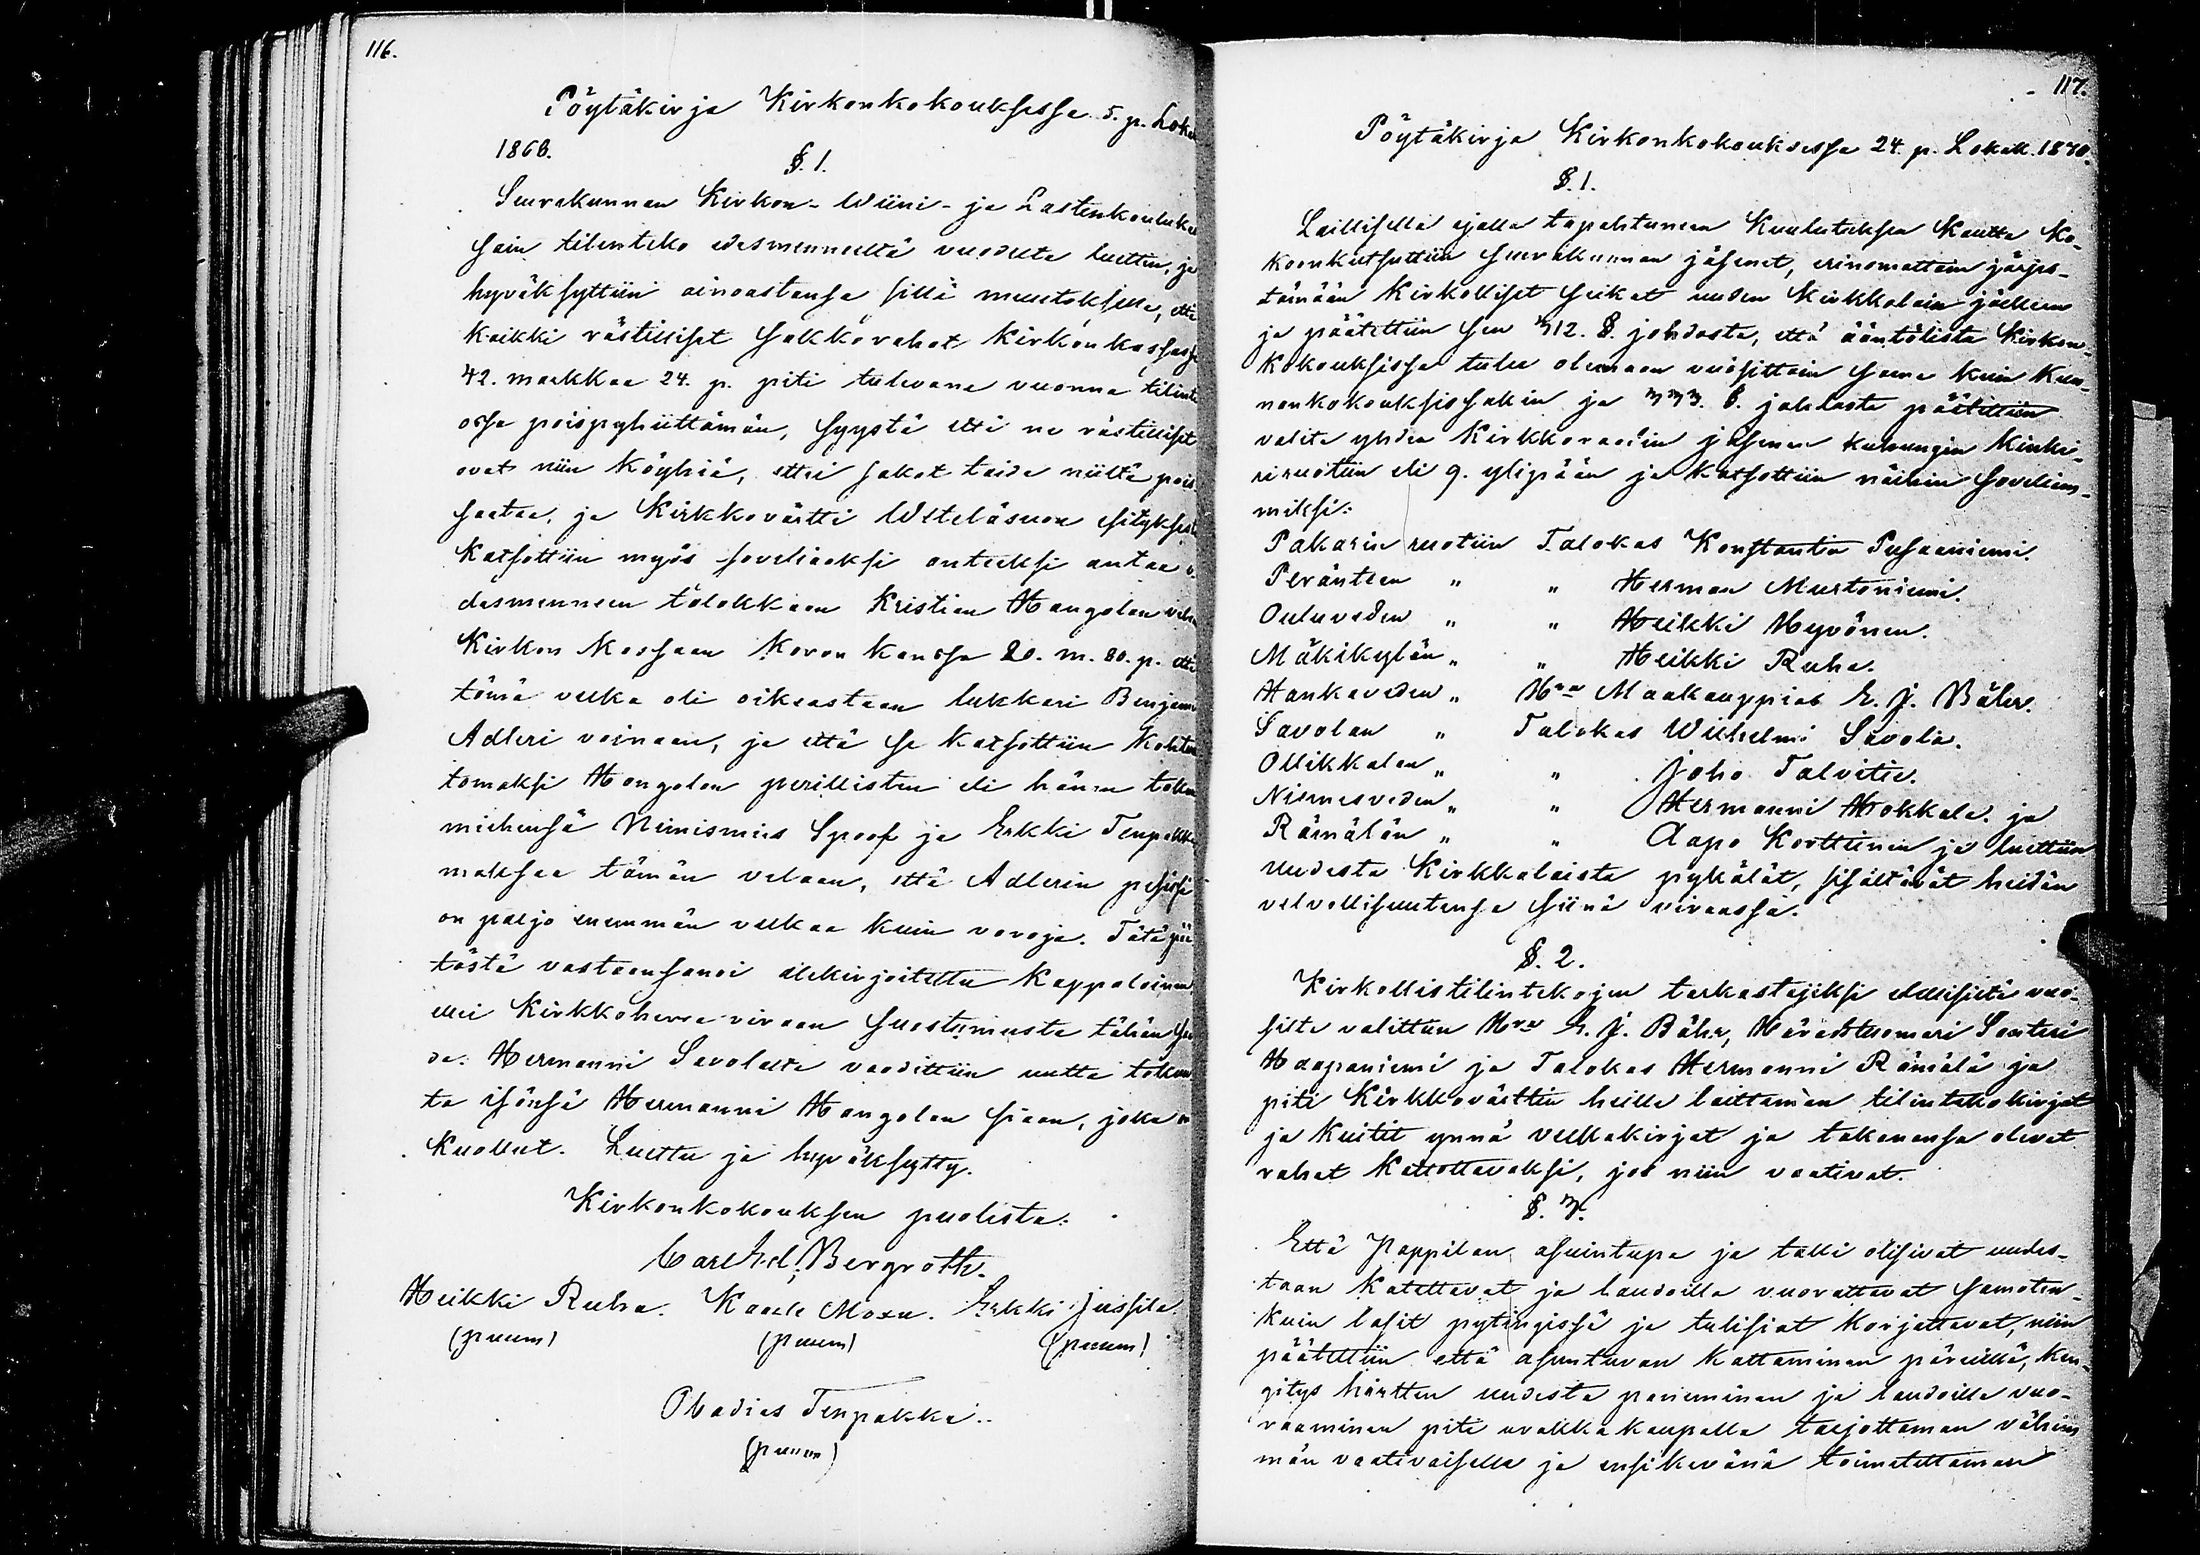 116.
Pöytäkirja Kirkonkokouksessa 5. p. Loka
1868.
§. 1.
Seurakunnan Kirkon- Wiini- ja Lastenkouluka
sain tilinteko edesmenneeltä vuodelta luettiin, ja
hyväksyttiin ainoastansa sillä muutoksella, että
kaikki rästilliset sakkorahat Kirkonkassassa
42. markkaa 24. p. piti tulevana vuonna tilinte
ossa poispyhiittämän, syystä että ne rästilliset
ovat niin köyhiä, ettei sakot taida niiltä pois
saataa, ja Kirkkovärtti Weteläsuon esityksestä
katsottiin myös soveliaaksi anteeksi antaa e-
desmenneen talokkaan Kristian Hangolan velan
Kirkon Kassaan Koron kanssa 20. m. 80. p. että
tämä velka oli oikeastaan lukkari Benjami
Adleri vainaan, ja että se katsottiin kohtu
tomaksi Hongolan perillisten eli hänen takau
miehensä Nimismies Spoof ja Erkki Tenpakka
maksaa tämän velaan, että Adlerin pesässä
on paljo enemmän velkaa kuin varoja. Tätä pää
töstä vastaansanoi allekirjoitettu Kappalainen
eli Kirkkoherra viraan suostumusta tähän
Hermanni Savolalta vaadittiin uutta takau
ta isänsä Hermanni Hangolan siaan, joka o
kuollut. Luettu ja hyväksytty.
Kirkonkokouksen puolesta:
Carl Ed. Bergroth.
Heikki Ruha. Kaarle Moxu. Erkki Jussila.
(puum) (puum) (puum)
Obadias Tenpakka.
(puum)
117.
Pöytäkirja Kirkonkokouksessa 24. p. Lokak. 1870.
§. 1.
Laillisella ajalla tapahtuneen Kuulutuksen kautta ko-
koonkutsuttiin seurakunnan jäsenet, erinomattain järjes-
tämään kirkolliset seikat uuden kirkkolain jälkeen
ja päätettiin sen 312. §. johdosta, että ääntölista Kirkon-
kokouksissa tulee olemaan vuosittain sama kuin Kun-
nankokouksissakin ja 333. §. johdosta päätettiin
valita yhden Kirkkoraadin jäsenen kuhungin kinke-
riruotiin eli 9. ylipään ja katsottiin näihin soveliam-
miksi:
Pakarin ruotiin Talokas Konstantin Pusaaniemi.
Peränteen " " Herman Murtoniemi.
Ouluveden " " Heikki Hyvönen.
Mäkikylän " " Heikki Ruha.
Hankaveden " Hra Maakauppias E. J. Bähr.
Savolan " Talokas Wilhelmi Savola.
Ollikkalan " " Joho Talvitie.
Niemesveden " " Hermanni Hokkala. ja
Rämälän " " Aapo Korttinen ja luettiin
uudesta Kirkkolaista pykälät, sisältävät heidän
velvollisuutensa siinä virassa.
§. 2.
Kirkollistilintekojen tarkastajiksi
silta valittiin Hra E. J. Bähr, Häradstuomari Santeri
Haapaniemi ja Talokas Hermanni Rämälä ja
piti Kirkkovärttin heille laittaman tilintekokirjat
ja kuitit ynnä velkakirjat ja takanansa olevat
rahat katsottavaksi, jos niin vaativat.
§. 3.
Että Pappilan asuintupa ja talli olisivat uudes-
taan katettavat ja laudoilla vuorattavat samoten-
kuin lasit pytingissä ja tulisiat korjattavat, niin
päätettiin että asuntuvan kattaminen päreillä, ken-
gitys hirtten uudesta paneminen ja laudoilla vuo-
raaminen piti urakkakaupalla tarjottaman vähim
män vaativaisella ja ensikevänä toimitettaman